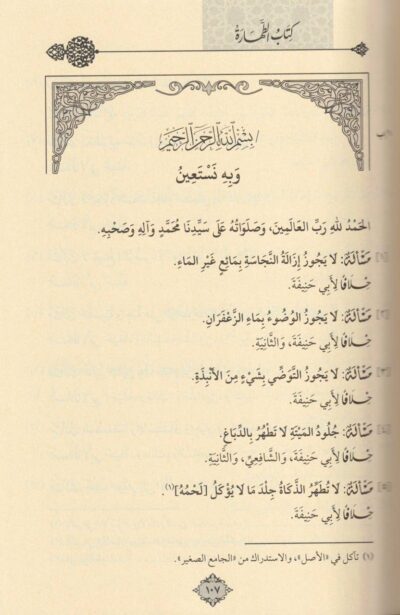 كِتَابُ الطَّهَارَةِ
بِسْمِ اللهِ الرَّحْمَنِ الرَّحِيمِ
وَبِهِ نَسْتَعِينُ
الحَمْدُ للهِ رَبِّ العَالَمِينَ، وَصَلَوَاتُهُ عَلَى سَيِّدِنَا مُحَمَّدٍ وَآلِهِ وَصَحْبِهِ.
[١] مَسْأَلَةٌ: لَا يَجُوزُ إِزَالَةُ النَّجَاسَةِ بِمَائِعٍ غَيْرِ المَاءِ.
خِلَافًا لِأَبِي حَنِيفَةَ.
[٢] مَسْأَلَةٌ: لَا يَجُوزُ الوُضُوءُ بِمَاءِ الزَّعْفَرَانِ.
خِلَافًا لِأَبِي حَنِيفَةَ، وَالثَّانِيَةِ.
[٣] مَسْأَلَةٌ: لَا يَجُوزُ التَّوَضِّي بِشَيْءٍ مِنَ الأَنْبِذَةِ.
خِلَافًا لِأَبِي حَنِيفَةَ.
[٤] مَسْأَلَةٌ: جُلُودُ المَيْتَةِ لَا تَطْهُرُ بِالدِّبَاغِ.
خِلَافًا لِأَبِي حَنِيفَةَ، وَالشَّافِعِيِّ، وَالثَّانِيَةِ.
[٥] مَسْأَلَةٌ: لَا تُطَهِّرُ الذَّكَاةُ جِلْدَ مَا لَا يُؤْكَلُ [لَحْمُهُ](١).
خِلَافًا لِأَبِي حَنِيفَةَ.
(١) تأكل في «الأصل»، والاستدراك من «الجامع الصغير».
١٠٧